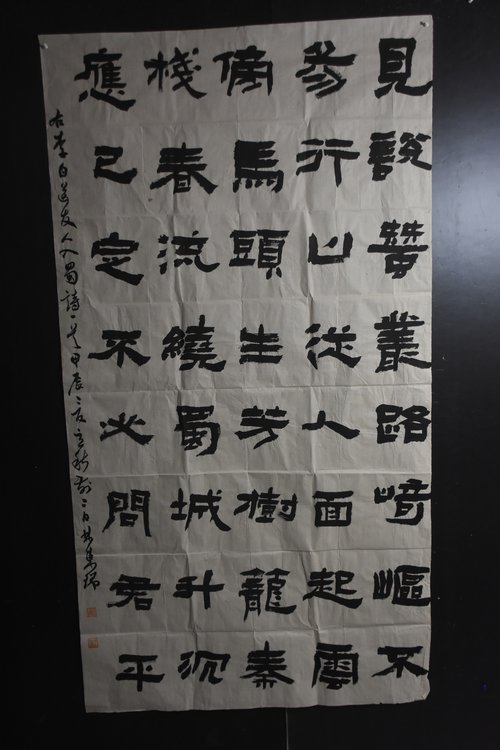 見說蠶叢路崎嶇不
易行山從人面起雲
傍馬頭生芳樹籠秦
棧春流繞蜀城升沉
應已定不必問君平
右李白送友人入蜀詩一首甲辰之夏立秋前二日